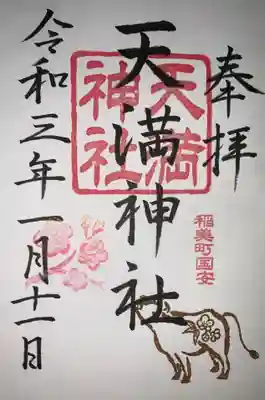 奉拝
稲美町国安
天満神社
天満
神社
令和三年一月十一日